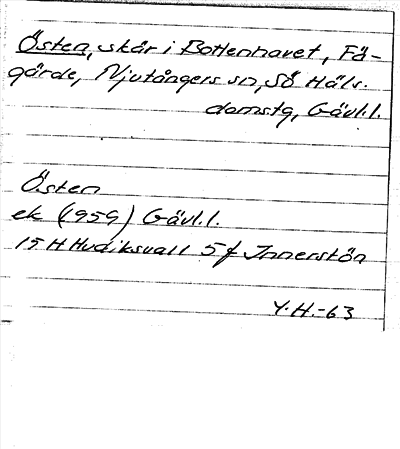 Östen, skär i Bottenhavet, Få-
gärde, Njutångers sn, SÖ Häls.
domstg, Gävl.l.
Östen
ek (1959) Gävl.l.
15 H Hudiksvall 5 f Innerstön
Y.H.-63